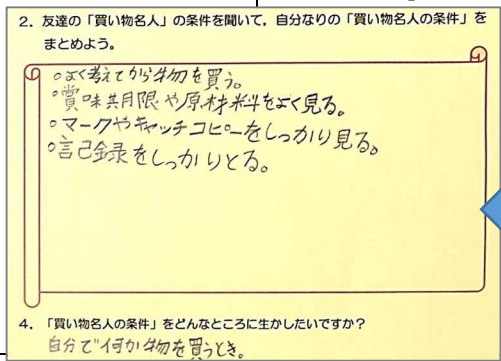 2．友達の「買い物名人」の条件を聞いて，自分なりの「買い物名人の条件」を
まとめよう。
○よく考えてから物を買う。
○賞味期限や原材料をよく見る。
○マークやキャッチコピーをしっかり見る。
○記録をしっかりとる。
4．「買い物名人の条件」をどんなところに生かしたいですか？
自分で何か物を買うとき。